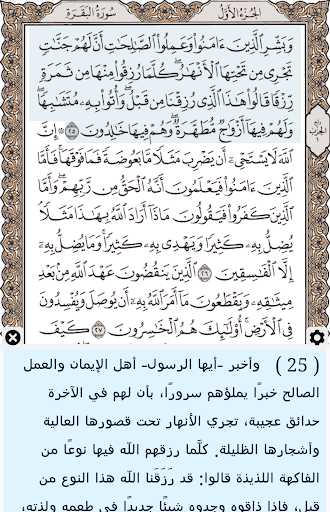 سُورَةُ البَقَرَةِ الجُزْءُ الأَوَّلُ
وَبَشِّرِ الَّذِينَ ءَامَنُوا وَعَمِلُوا الصَّٰلِحَٰتِ أَنَّ لَهُمْ جَنَّٰتٍ
تَجْرِى مِن تَحْتِهَا الْأَنْهَٰرُ ۖ كُلَّمَا رُزِقُوا مِنْهَا مِن ثَمَرَةٍ
رِّزْقًا قَالُوا هَٰذَا الَّذِى رُزِقْنَا مِن قَبْلُ ۖ وَأُتُوا بِهِۦ مُتَشَٰبِهًا ۖ
وَلَهُمْ فِيهَا أَزْوَٰجٌ مُّطَهَّرَةٌ ۖ وَهُمْ فِيهَا خَٰلِدُونَ ٢٥ ۞ إِنَّ
اللَّهَ لَا يَسْتَحْىِۦٓ أَن يَضْرِبَ مَثَلًا مَّا بَعُوضَةً فَمَا فَوْقَهَا ۚ فَأَمَّا
الَّذِينَ ءَامَنُوا فَيَعْلَمُونَ أَنَّهُ الْحَقُّ مِن رَّبِّهِمْ ۖ وَأَمَّا
الَّذِينَ كَفَرُوا فَيَقُولُونَ مَاذَآ أَرَادَ اللَّهُ بِهَٰذَا مَثَلًا ۘ
يُضِلُّ بِهِۦ كَثِيرًا وَيَهْدِى بِهِۦ كَثِيرًا ۚ وَمَا يُضِلُّ بِهِۦٓ
إِلَّا الْفَٰسِقِينَ ٢٦ الَّذِينَ يَنقُضُونَ عَهْدَ اللَّهِ مِنۢ بَعْدِ
مِيثَٰقِهِۦ وَيَقْطَعُونَ مَآ أَمَرَ اللَّهُ بِهِۦٓ أَن يُوصَلَ وَيُفْسِدُونَ
فِى الْأَرْضِ ۚ أُولَٰٓئِكَ هُمُ الْخَٰسِرُونَ ٢٧ كَيْفَ
( 25 ) وأخبر -أيها الرسول- أهل الإيمان والعمل
الصالح خبرًا يملؤهم سرورًا، بأن لهم في الآخرة
حدائق عجيبة، تجري الأنهار تحت قصورها العالية
وأشجارها الظليلة. كلَّما رزقهم الله فيها نوعًا من
الفاكهة اللذيذة قالوا: قد رَزَقَنا الله هذا النوع من
قبل، فإذا ذاقوه وجدوه شيئًا جديدًا في طعمه ولذته،